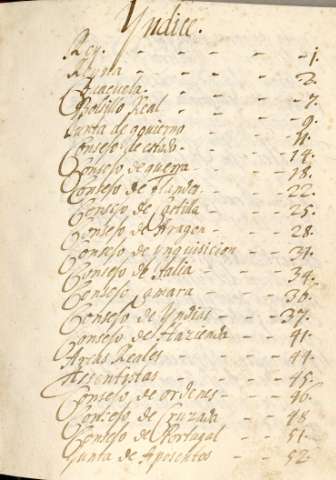 Yndice.
Rey. - - - - - - 1.
Reyna - - - - - 2.
Bolsillo Real - - - - 7.
Junta de govierno - - - 9.
Consejo de estado - - - 11.
Consejo de guerra - - - 14.
Consejo de Flandes - - - 18.
Consejo de Castilla - - - 22.
Consejo de Aragon - - - 25.
Consejo de ynquisicion - - 28.
Consejo de Italia - - - 31.
Consejo Camara - - - 34.
Consejo de Yndias - - - 36.
Consejo de Hazienda - - 37.
Arcas Reales - - - 41.
Assentistas - - - 44.
Consejo de ordenes - - 45.
Consejo de Cruzada - - 46.
Consejo de Portugal - - 48
Junta de Aposentos - - 51.
52.